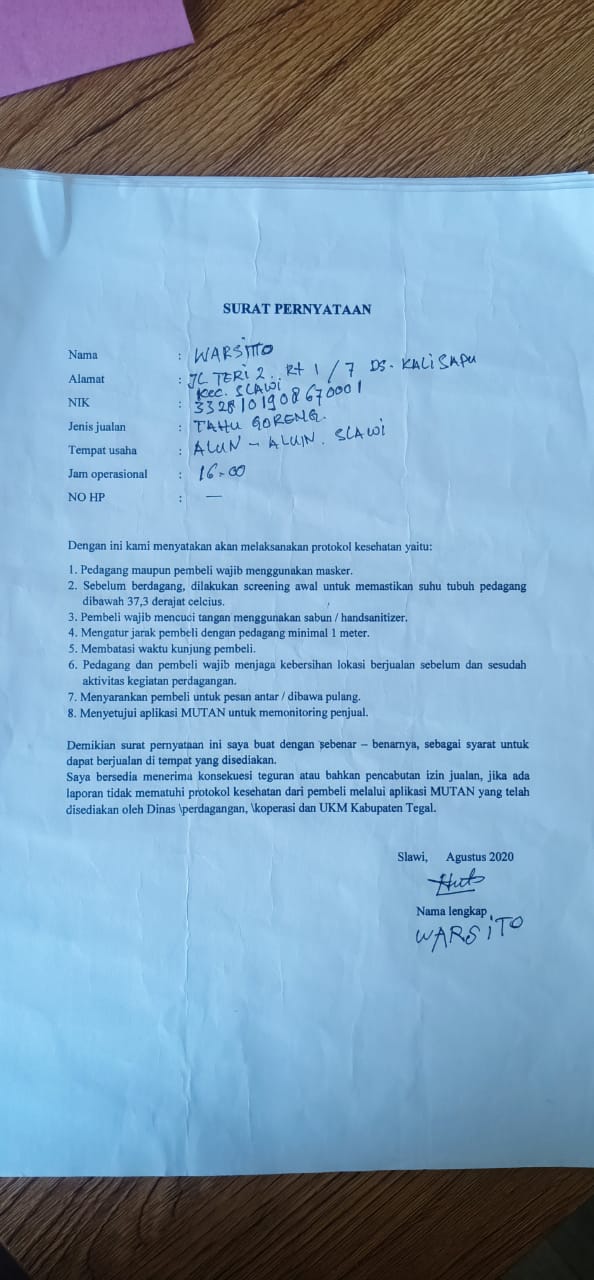 SURAT PERNYATAAN
Nama : WARSITO
Alamat : JL TERI 2. Rt 1 / 7 DS. KALISAPU
Kec. SLAWI
NIK : 3328101908670001
Jenis jualan : TAHU GORENG.
Tempat usaha : ALUN - ALUN. SLAWI
Jam operasional : 16-00
NO HP : —
Dengan ini kami menyatakan akan melaksanakan protokol kesehatan yaitu:
1. Pedagang maupun pembeli wajib menggunakan masker.
2. Sebelum berdagang, dilakukan screening awal untuk memastikan suhu tubuh pedagang
dibawah 37,3 derajat celcius.
3. Pembeli wajib mencuci tangan menggunakan sabun / handsanitizer.
4. Mengatur jarak pembeli dengan pedagang minimal 1 meter.
5. Membatasi waktu kunjung pembeli.
6. Pedagang dan pembeli wajib menjaga kebersihan lokasi berjualan sebelum dan sesudah
aktivitas kegiatan perdagangan.
7. Menyarankan pembeli untuk pesan antar / dibawa pulang.
8. Menyetujui aplikasi MUTAN untuk memonitoring penjual.
Demikian surat pernyataan ini saya buat dengan sebenar – benarnya, sebagai syarat untuk
dapat berjualan di tempat yang disediakan.
Saya bersedia menerima konsekuesi teguran atau bahkan pencabutan izin jualan, jika ada
laporan tidak mematuhi protokol kesehatan dari pembeli melalui aplikasi MUTAN yang telah
disediakan oleh Dinas \perdagangan, \koperasi dan UKM Kabupaten Tegal.
Slawi, Agustus 2020
Nama lengkap
WARSITO